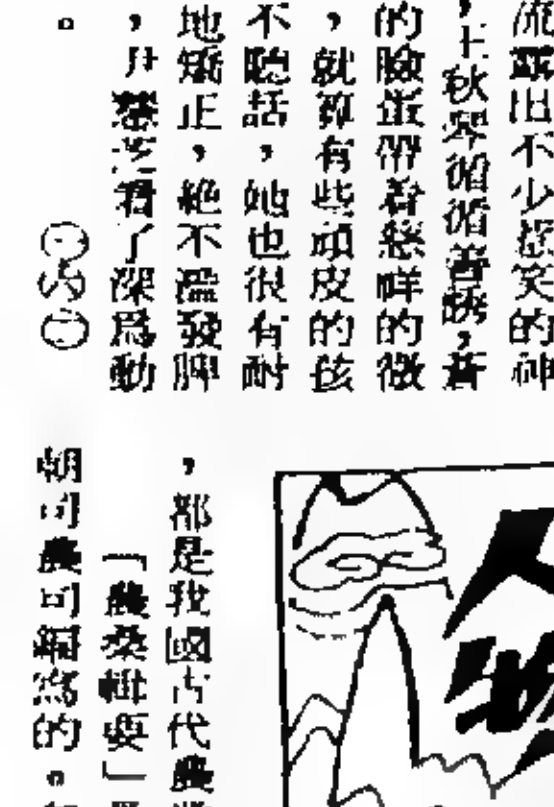 流露出不少惹笑的神
，王秋琴循循善誘，蒼
的臉蛋帶着慈祥的微
，就算有些頑皮的孩
不聽話，她也很有耐
地矯正，絕不濫發脾
，看了深爲動
。
人物
，都是我國古代農
「農桑輯要」
朝司農司編寫的。